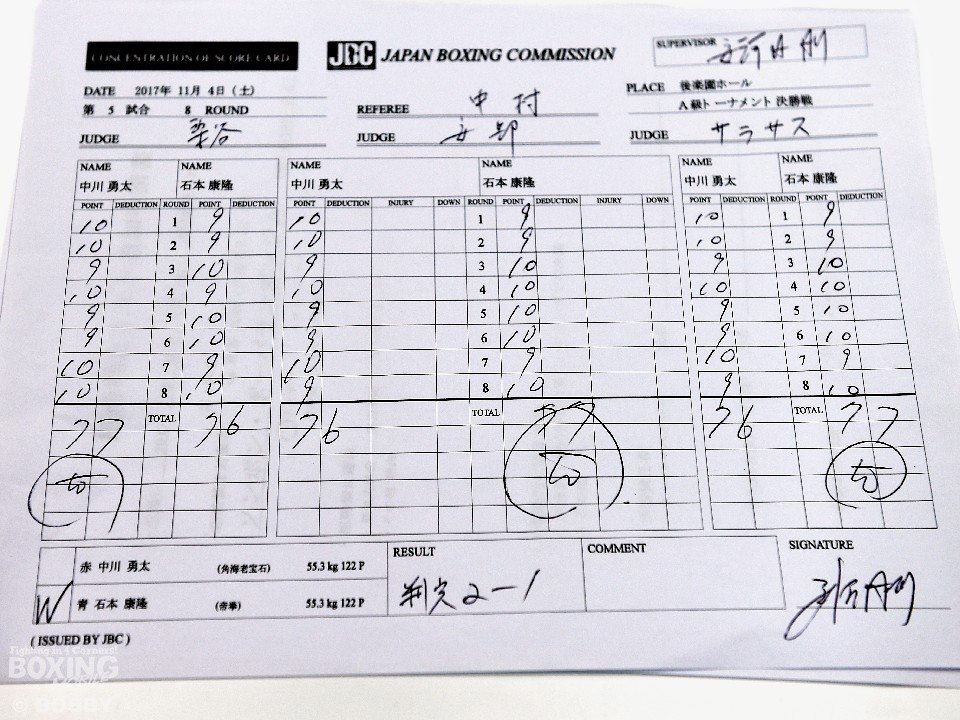 CONCENTRATION OF SCORE CARD
JBC JAPAN BOXING COMMISSION
SUPERVISOR
DATE 2017年 11月 4日 (土)
PLACE 後楽園ホール
第 5 試合 8 ROUND
REFEREE 中村
A級トーナメント 決勝戦
JUDGE 染谷 JUDGE 安部 JUDGE サラサス
NAME NAME NAME NAME NAME NAME
中川 勇太 石本 康隆 中川 勇太 石本 康隆 中川 勇太 石本 康隆
POINT DEDUCTION ROUND POINT DEDUCTION POINT DEDUCTION INJURY DOWN ROUND POINT DEDUCTION INJURY DOWN POINT DEDUCTION ROUND POINT DEDUCTION
10 1 9 10 1 9 10 1 9
10 2 9 10 2 9 10 2 9
9 3 10 9 3 10 9 3 10
10 4 9 10 4 10 10 4 10
9 5 10 9 5 10 9 5 10
9 6 10 9 6 10 9 6 10
10 7 9 10 7 9 10 7 9
10 8 10 9 8 10 9 8 10
77 TOTAL 76 76 TOTAL 77 76 TOTAL 77
赤 中川 勇太 (角海老宝石) 55.3 kg 122 P
W 青 石本 康隆 (帝拳) 55.3 kg 122 P
RESULT
判定 2-1
COMMENT
SIGNATURE
( ISSUED BY JBC )
Fighting in 4 Corners!
BOXING
MOBILE
© BOBBY